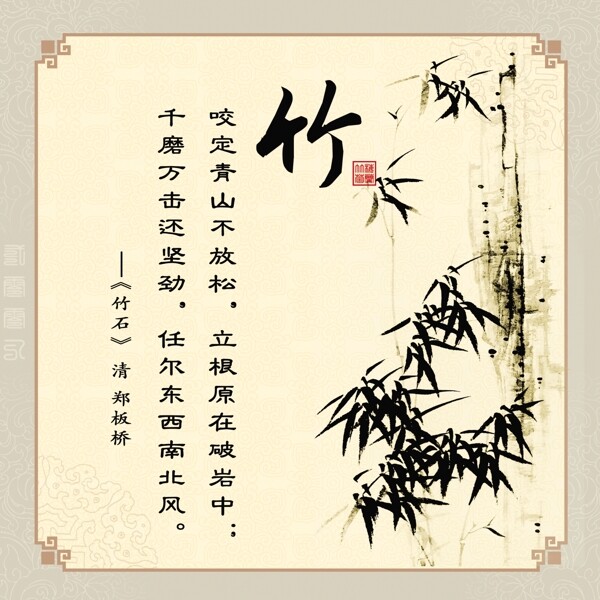 竹
咬定青山不放松，立根原在破岩中；
千磨万击还坚劲，任尔东西南北风。
——《竹石》 清 郑板桥